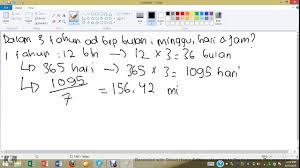 Dalam 3 tahun ad brp bulan, minggu, hari & jam?
1 tahun : 12 bln → 12 x 3 = 36 bulan
↳ 365 hari → 365 x 3 = 1095 hari
↳ 1095 / 7 = 156,42 mi